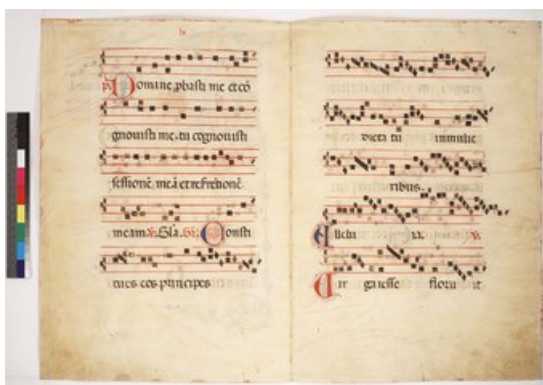 Domine pbasti me et cō
gnouisti me. tu cognouisti
sessionē meā et
meam. ℣. Gła. Consti
tues eos principes
dicta tu in mulie
ribus.
Alleluia. ℣.
Uir ga iesse floru it